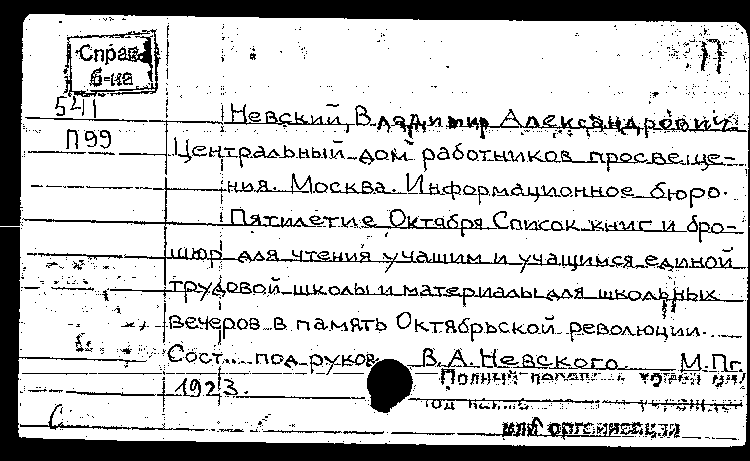 Справ.
б-на
П
5211
Невский, Владимир Александрович.
П99
Центральный дом работников просвеще-
ния. Москва. Информационное бюро.
Пятилетие Октября. Список книг и бро-
шюр для чтения учащим и учащимся единой
трудовой школы и материалы для школьных
вечеров в память Октябрьской революции.
Сост. под руков. В.А. Невского. М.Пг.
1923.
Полный
или организации